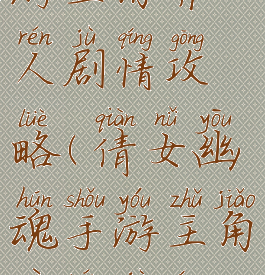 rén jù qíng gōng
人剧情攻
lüè qiàn nǚ yōu
略(倩女幽
hún shǒu yóu zhǔ jiǎo
魂手游主角